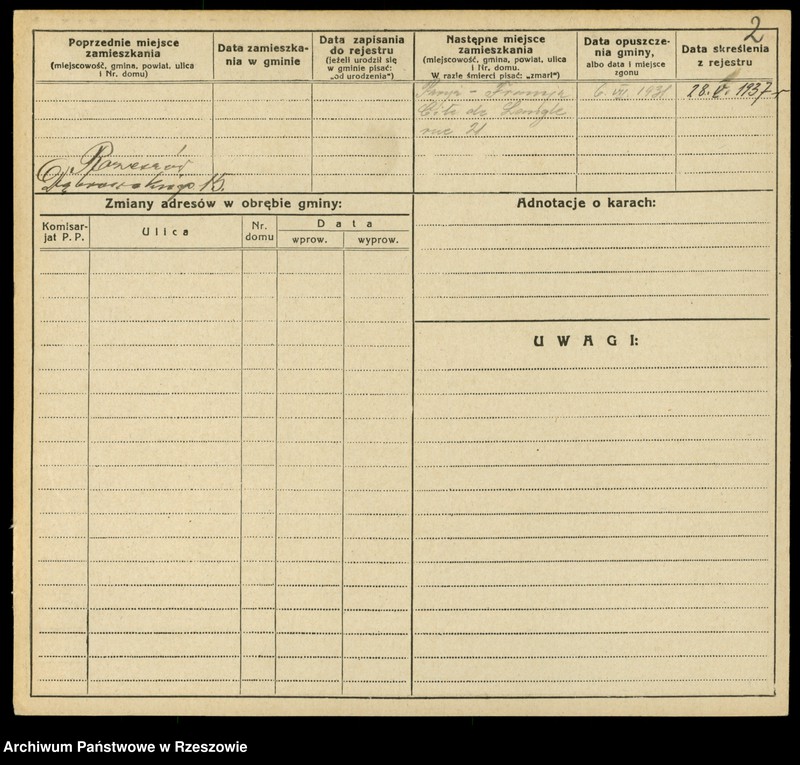 2
Poprzednie miejsce
zamieszkania
(miejscowość, gmina, powiat, ulica
i Nr. domu)
Data zamieszka-
nia w gminie
Data zapisania
do rejestru
(jeżeli urodził się
w gminie pisać:
„od urodzenia")
Następne miejsce
zamieszkania
(miejscowość, gmina, powiat, ulica
i Nr. domu.
W razie śmierci pisać: „zmarł")
Data opuszcze-
nia gminy,
albo data i miejsce
zgonu
Data skreślenia
z rejestru
Paryż - Francja
6. VII. 1931
28. V. 1937 r
Cité de
rue 21
Rzeszów
Dąbrowskiego 15.
Zmiany adresów w obrębie gminy:
Komisar-
jat P. P.
Ulica
Nr.
domu
Data
wprow.
wyprow.
Adnotacje o karach:
UWAGI:
Archiwum Państwowe w Rzeszowie